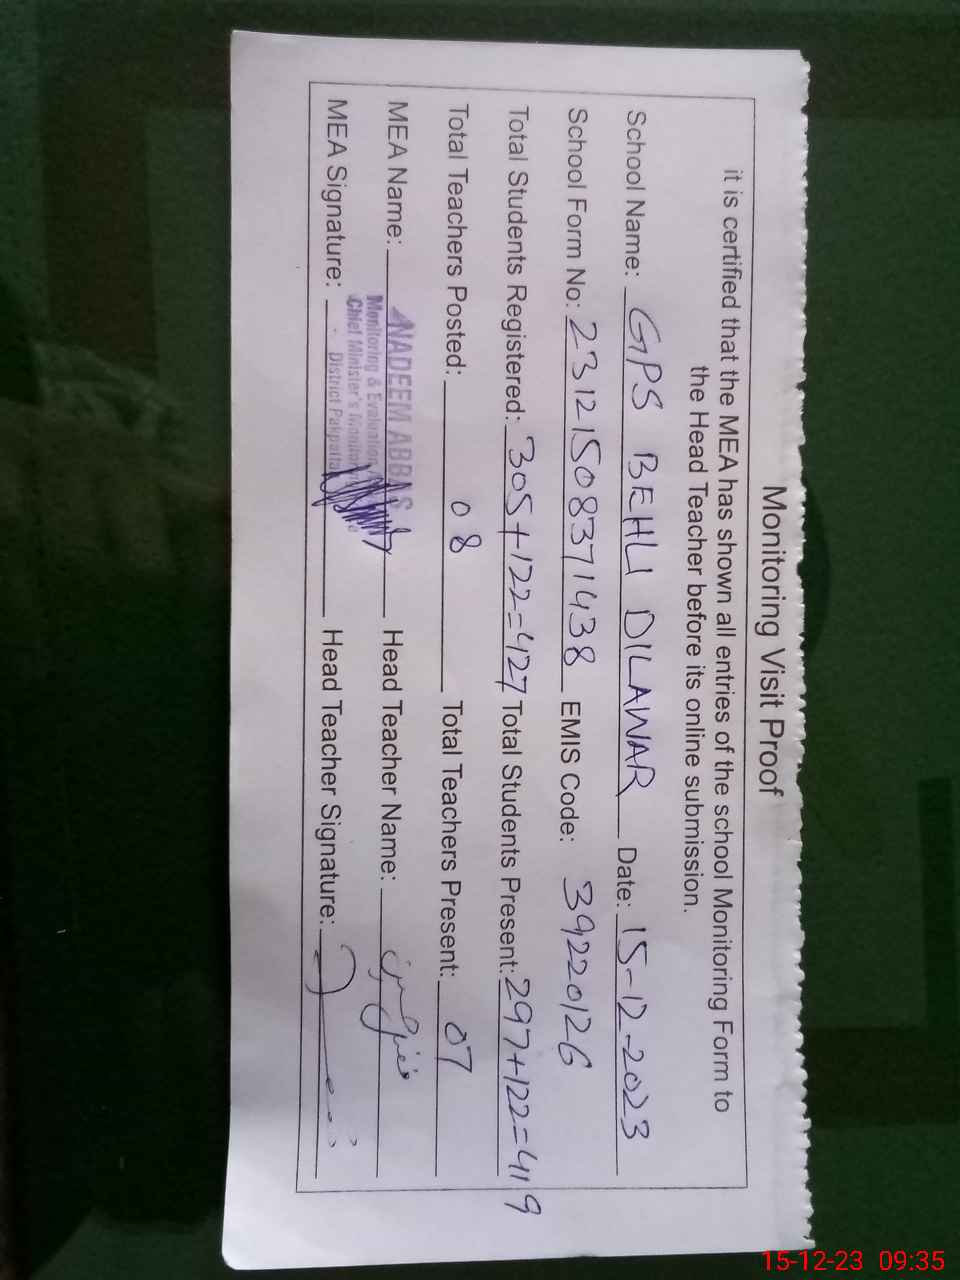 Monitoring Visit Proof
it is certified that the MEA has shown all entries of the school Monitoring Form to
the Head Teacher before its online submission.
School Name: GPS BEHLI DILAWAR Date: 15-12-2023
School Form No: 23121508371438 EMIS Code: 39220126
Total Students Registered: 305+122=427 Total Students Present: 297+122=419
Total Teachers Posted: 08 Total Teachers Present: 07
MEA Name: NADEEM ABBAS Head Teacher Name:
Monitoring & Evaluation
Chief Minister's Monitor
MEA Signature: District Pakpatta Head Teacher Signature:
15-12-23 09:35